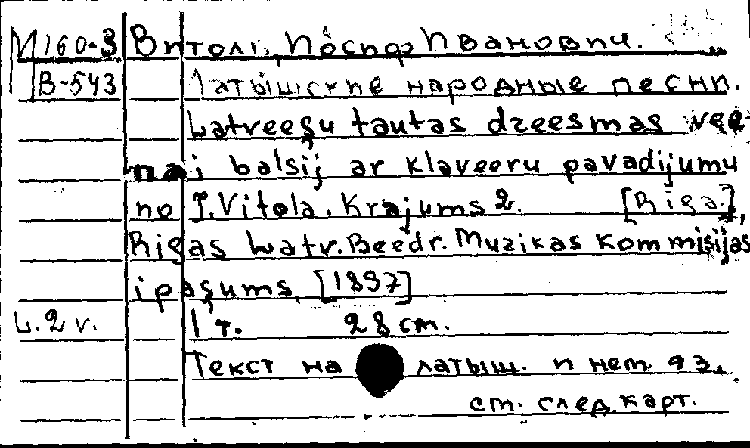 М160-3 Витол, Иосиф Иванович.
В-543 Латышские народные песни.
Latveešu tautas dzeesmas vee-
nai balsij ar klaveeru pavadijumu
no J. Vitola. Krajums 2. [Riga],
Rigas Latv. Beedr. Muzikas Kommisijas
ipašums, [1897]
L. 2 v. 1 т. 28 см.
Текст на латыш. и нем. яз.
см. след. карт.